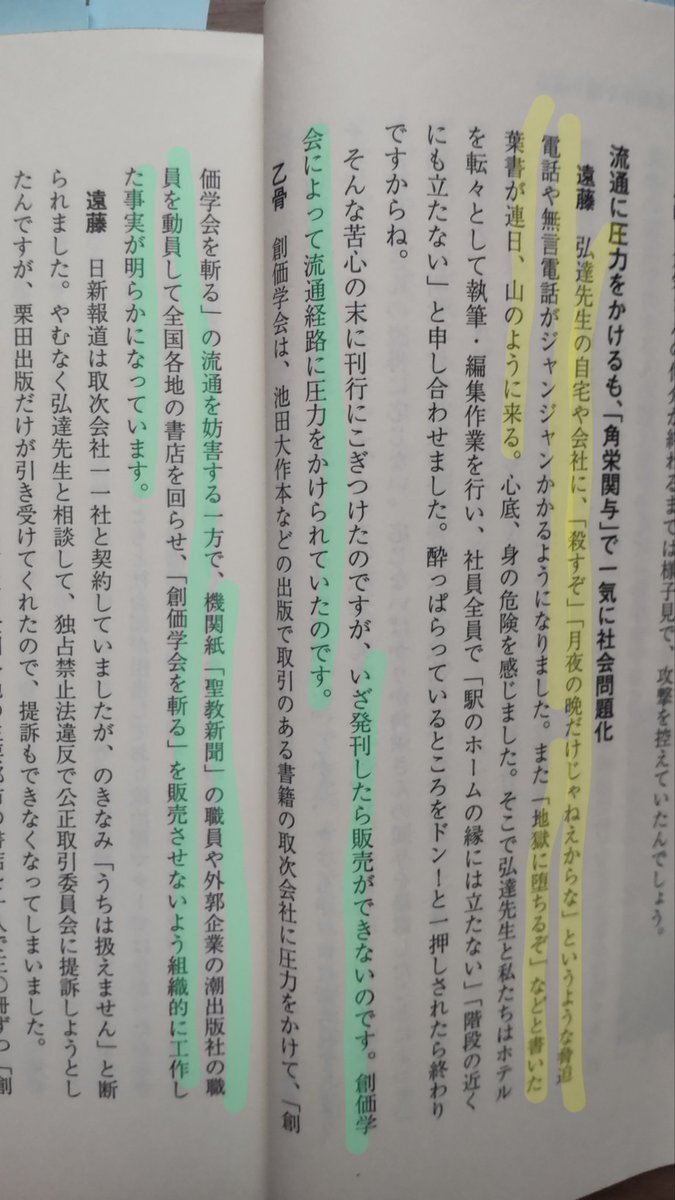 は様子見で、攻撃を控えていたんでしょう。
流通に圧力をかけるも、「角栄関与」で一気に社会問題化
遠藤　弘達先生の自宅や会社に、「殺すぞ」「月夜の晩だけじゃねえからな」というような脅迫
電話や無言電話がジャンジャンかかるようになりました。また「地獄に堕ちるぞ」などと書いた
葉書が連日、山のように来る。心底、身の危険を感じました。そこで弘達先生と私たちはホテル
を転々として執筆・編集作業を行い、社員全員で「駅のホームの縁には立たない」「階段の近く
にも立たない」と申し合わせました。酔っぱらっているところをドン！と一押しされたら終わり
ですからね。
そんな苦心の末に刊行にこぎつけたのですが、いざ発刊したら販売ができないのです。創価学
会によって流通経路に圧力をかけられていたのです。
乙骨　創価学会は、池田大作本などの出版で取引のある書籍の取次会社に圧力をかけて、「創
価学会を斬る」の流通を妨害する一方で、機関紙「聖教新聞」の職員や外郭企業の潮出版社の職
員を動員して全国各地の書店を回らせ、「創価学会を斬る」を販売させないよう組織的に工作し
た事実が明らかになっています。
遠藤　日新報道は取次会社一一社と契約していましたが、のきなみ「うちは扱えません」と断
られました。やむなく弘達先生と相談して、独占禁止法違反で公正取引委員会に提訴しようとし
たんですが、栗田出版だけが引き受けてくれたので、提訴もできなくなってしまいました。